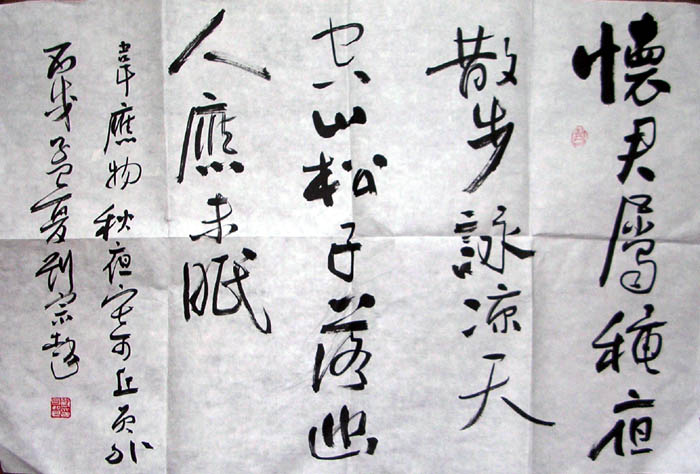 懷君屬穐夜
散步詠凉天
空山松子落幽
人應未眠
韋應物秋夜寄丘員外
丙戌孟夏劉宗